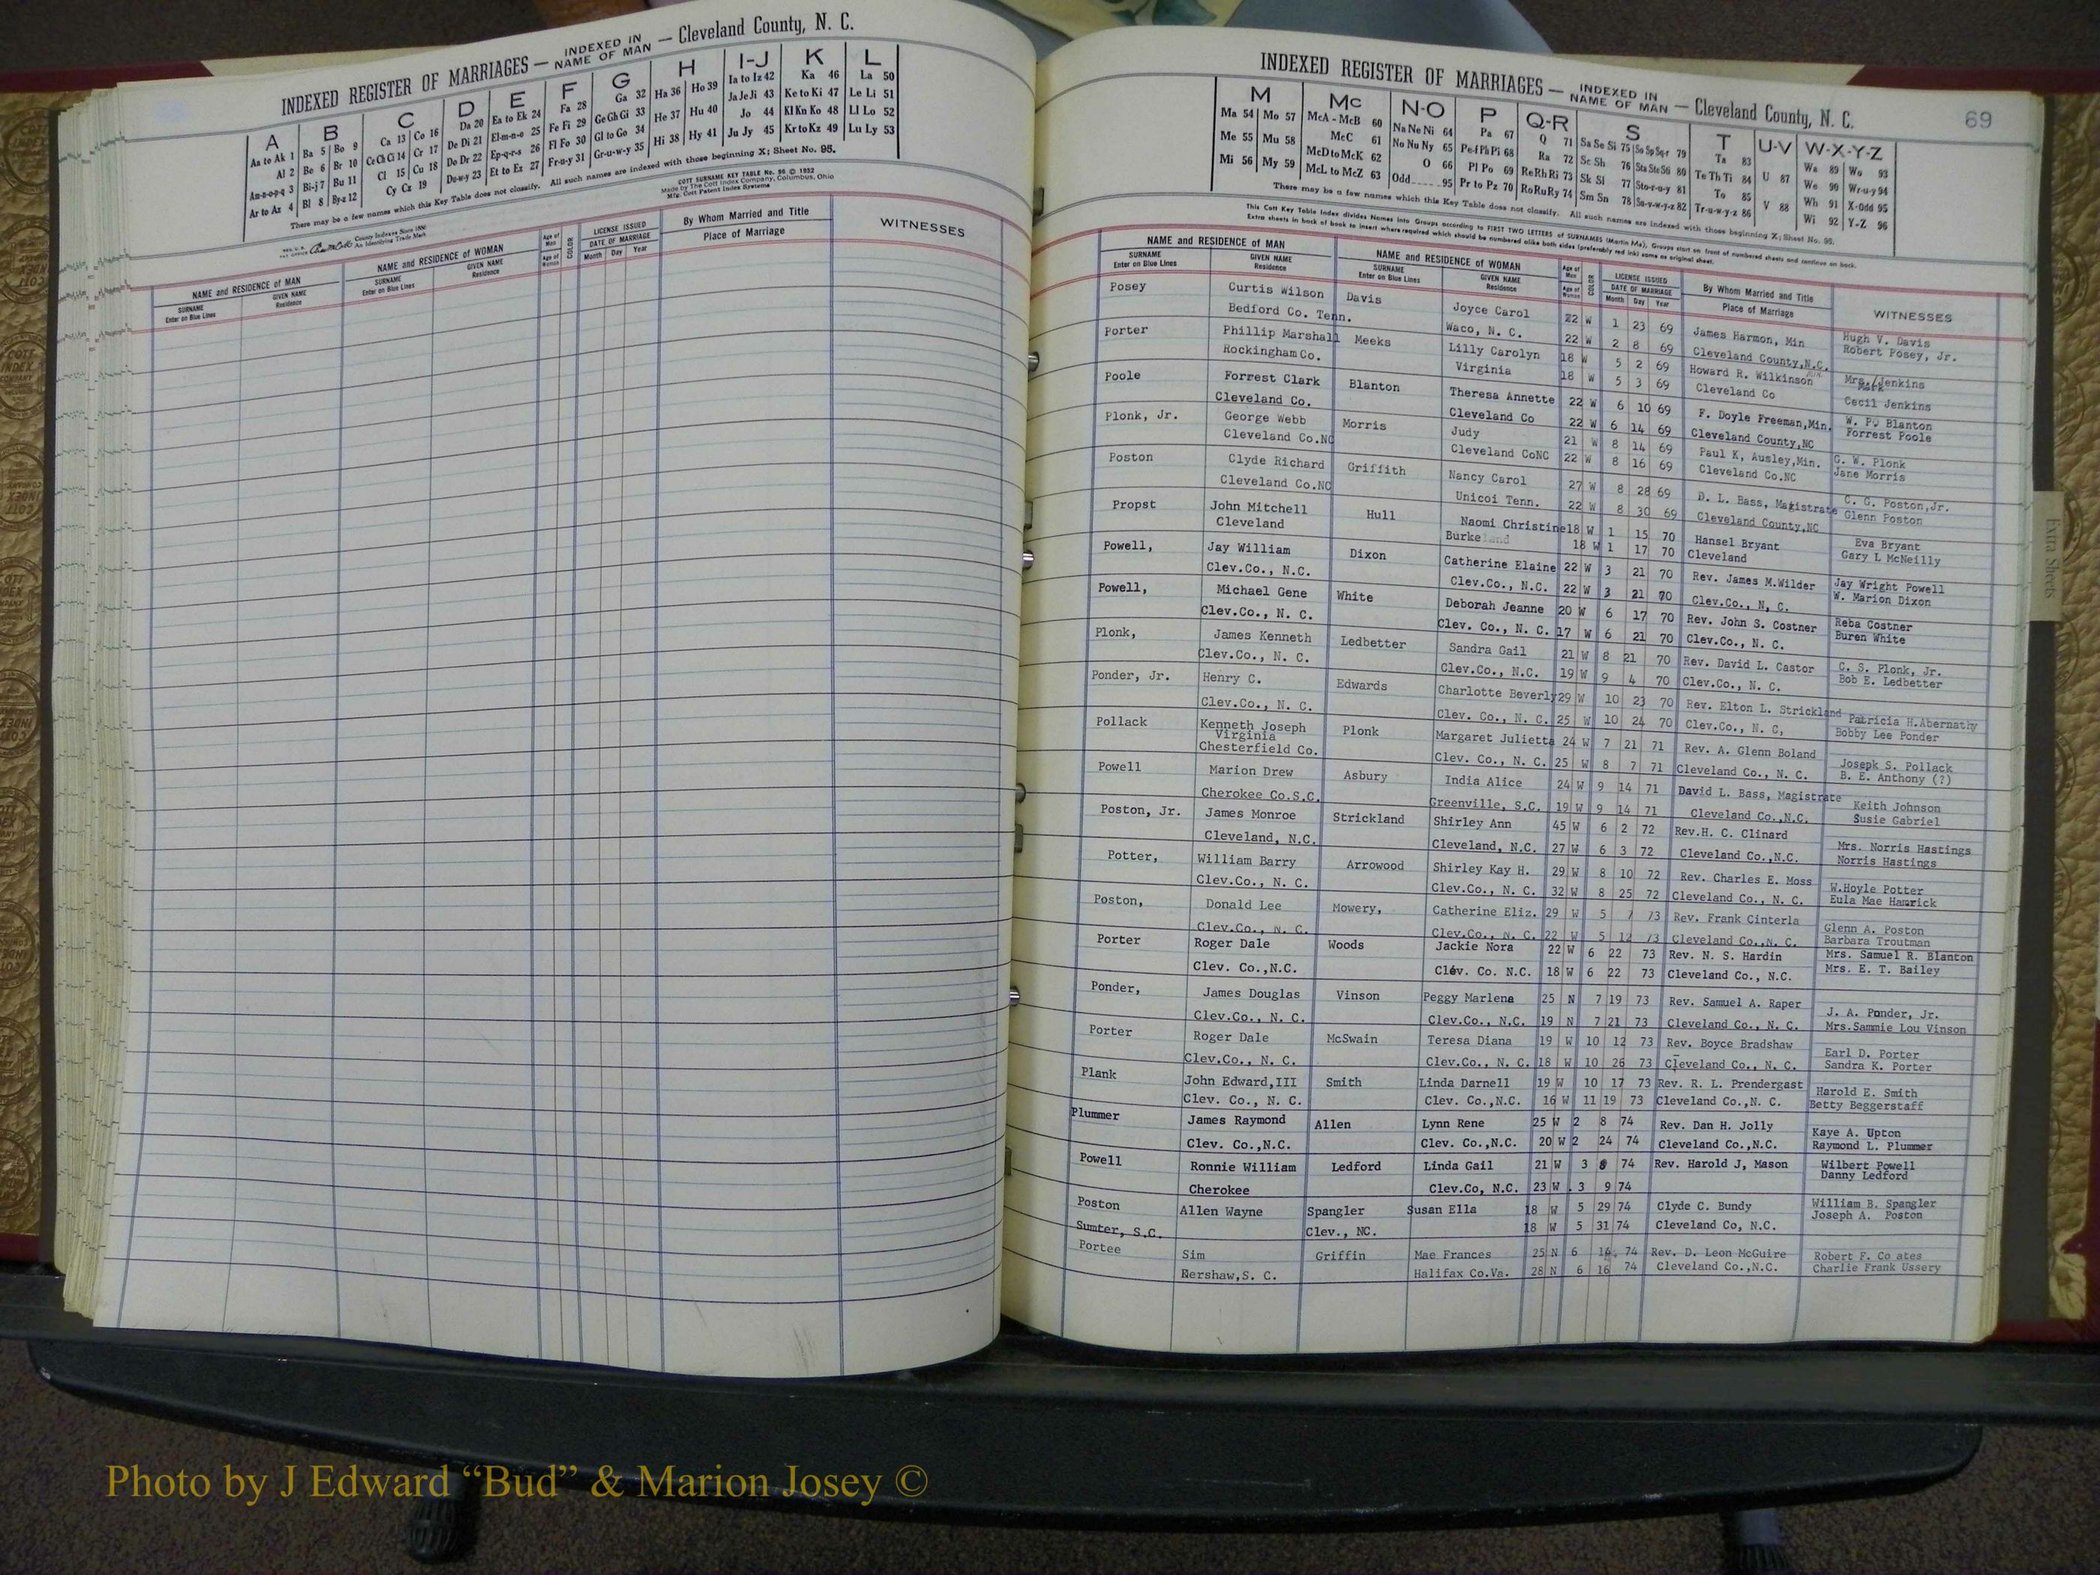 INDEXED REGISTER OF MARRIAGES — INDEXED IN NAME OF MAN — Cleveland County, N. C.
A B C D E F G H I-J K L
Aa to Ak 1 Ba 5 Bo 9 Ca 13 Co 16 Da 20 Ea to Ek 24 Fa 28 Ga 32 Ha 36 Ho 39 Ia to Iz 42 Ka 46 La 50
Al 2 Be 6 Br 10 Ce Ch Ci 14 Cr 17 De Di 21 El-m-n-o 25 Fe Fi 29 Ge Gh Gi 33 He 37 Hu 40 Ja Je Ji 43 Ke to Ki 47 Le Li 51
Am-n-o-p-q 3 Bi-j 7 Bu 11 Cl 15 Cu 18 Do Dr 22 Ep-q-r-s 26 Fl Fo 30 Gl to Go 34 Hi 38 Hy 41 Jo 44 Kl Kn Ko 48 Ll Lo 52
Ar to Az 4 Bl 8 By-z 12 Cy Cz 19 Du-w-y 23 Et to Ez 27 Fr-u-y 31 Gr-u-w-y 35 Ju Jy 45 Kr to Kz 49 Lu Ly 53
There may be a few names which this Key Table does not classify. All such names are indexed with those beginning X; Sheet No. 95.
COTT SURNAME KEY TABLE No. 96 © 1932
Made by The Cott Index Company, Columbus, Ohio
Mfg. Cott Patent Index Systems
County Indexes Since 1888
An Identifying Trade Mark
NAME and RESIDENCE OF MAN NAME and RESIDENCE OF WOMAN Age of Man Age of Woman COLOR LICENSE ISSUED DATE OF MARRIAGE By Whom Married and Title Place of Marriage WITNESSES
SURNAME Enter on Blue Lines GIVEN NAME Residence SURNAME Enter on Blue Lines GIVEN NAME Residence Month Day Year
INDEXED REGISTER OF MARRIAGES — INDEXED IN NAME OF MAN — Cleveland County, N. C. 69
M Mc N-O P Q-R S T U-V W-X-Y-Z
Ma 54 Mo 57 McA - McB 60 Na Ne Ni 64 Pa 67 Q 71 Sa Se Si 75 So Sp Sq-r 79 Ta 83 U 87 Wa 89 Wo 93
Me 55 Mu 58 McC 61 No Nu Ny 65 Pe-f Ph Pi 68 Ra 72 Sc Sh 76 Sta Ste Sti 80 Te Th Ti 84 We 90 Wr-u-y 94
Mi 56 My 59 McD to McK 62 O 66 Pl Po 69 Re Rh Ri 73 Sk Sl 77 Sto-r-u-y 81 To 85 V 88 Wh 91 X-Odd 95
McL to McZ 63 Odd 95 Pr to Pz 70 Ro Ru Ry 74 Sm Sn 78 Su-v-w-y-z 82 Tr-u-w-y-z 86 Wi 92 Y-Z 96
There may be a few names which this Key Table does not classify. All such names are indexed with those beginning X; Sheet No. 95.
This Cott Key Table Index divides Names into Groups according to FIRST TWO LETTERS of SURNAMES (Martin Ma). Groups start on front of numbered sheets and continue on back.
Extra sheets in back of book to insert where required which should be numbered alike both sides (preferably red ink) same as original sheet.
NAME and RESIDENCE OF MAN NAME and RESIDENCE OF WOMAN Age of Man Age of Woman COLOR LICENSE ISSUED DATE OF MARRIAGE By Whom Married and Title Place of Marriage WITNESSES
SURNAME Enter on Blue Lines GIVEN NAME Residence SURNAME Enter on Blue Lines GIVEN NAME Residence Month Day Year
Posey Curtis Wilson Davis Joyce Carol 22 W 1 23 69 James Harmon, Min Hugh V. Davis
Bedford Co. Tenn. Waco, N. C. 22 W 2 8 69 Cleveland County,N.C. Robert Posey, Jr.
Porter Phillip Marshall Meeks Lilly Carolyn 18 W 5 2 69 Howard R. Wilkinson Mrs. Jenkins
Rockingham Co. Virginia 18 W 5 3 69 Cleveland Co Cecil Jenkins
Poole Forrest Clark Blanton Theresa Annette 22 W 6 10 69 F. Doyle Freeman,Min. W. P. Blanton
Cleveland Co. Cleveland Co 22 W 6 14 69 Cleveland County,NC Forrest Poole
Plonk, Jr. George Webb Morris Judy 21 W 8 14 69 Paul K, Ausley,Min. G. W. Plonk
Cleveland Co.NC Cleveland CoNC 22 W 8 16 69 Cleveland Co.NC Jane Morris
Poston Clyde Richard Griffith Nancy Carol 27 W 8 28 69 D. L. Bass, Magistrate C. G. Poston,Jr.
Cleveland Co.NC Unicoi Tenn. 22 W 8 30 69 Cleveland County,NC Glenn Poston
Propst John Mitchell Hull Naomi Christine 18 W 1 15 70 Hansel Bryant Eva Bryant
Cleveland Burke 18 W 1 17 70 Cleveland Gary L McNeilly
Powell, Jay William Dixon Catherine Elaine 22 W 3 21 70 Rev. James M.Wilder Jay Wright Powell
Clev.Co., N.C. Clev.Co., N.C. 22 W 3 21 70 Clev.Co., N, C. W. Marion Dixon
Powell, Michael Gene White Deborah Jeanne 20 W 6 17 70 Rev. John S. Costner Reba Costner
Clev.Co., N. C. Clev. Co., N. C. 17 W 6 21 70 Clev.Co., N. C. Buren White
Plonk, James Kenneth Ledbetter Sandra Gail 21 W 8 21 70 Rev. David L. Castor C. S. Plonk, Jr.
Clev.Co., N. C. Clev.Co., N.C. 19 W 9 4 70 Clev.Co., N. C. Bob E. Ledbetter
Ponder, Jr. Henry C. Edwards Charlotte Beverly 29 W 10 23 70 Rev. Elton L. Strickland Patricia H.Abernathy
Clev.Co., N. C. Clev. Co., N. C. 25 W 10 24 70 Clev.Co., N. C, Bobby Lee Ponder
Pollack Kenneth Joseph Plonk Margaret Julietta 24 W 7 21 71 Rev. A. Glenn Boland Joseph S. Pollack
Virginia
Chesterfield Co. Clev. Co., N. C. 25 W 8 7 71 Cleveland Co., N. C. B. E. Anthony (?)
Powell Marion Drew Asbury India Alice 24 W 9 14 71 David L. Bass, Magistrate Keith Johnson
Cherokee Co.S.C. Greenville, S.C. 19 W 9 14 71 Cleveland Co.,N.C. Susie Gabriel
Poston, Jr. James Monroe Strickland Shirley Ann 45 W 6 2 72 Rev.H. C. Clinard Mrs. Norris Hastings
Cleveland, N.C. Cleveland, N.C. 27 W 6 3 72 Cleveland Co.,N.C. Norris Hastings
Potter, William Barry Arrowood Shirley Kay H. 29 W 8 10 72 Rev. Charles E. Moss W.Hoyle Potter
Clev.Co., N. C. Clev.Co., N. C. 32 W 8 25 72 Cleveland Co., N. C. Eula Mae Hamrick
Poston, Donald Lee Mowery, Catherine Eliz. 29 W 5 7 73 Rev. Frank Cinterla Glenn A. Poston
Clev.Co., N. C. Clev.Co., N. C. 22 W 5 12 73 Cleveland Co.,N. C. Barbara Troutman
Porter Roger Dale Woods Jackie Nora 22 W 6 22 73 Rev. N. S. Hardin Mrs. Samuel R. Blanton
Clev. Co.,N.C. Clev. Co. N.C. 18 W 6 22 73 Cleveland Co., N.C. Mrs. E. T. Bailey
Ponder, James Douglas Vinson Peggy Marlene 25 N 7 19 73 Rev. Samuel A. Raper J. A. Ponder, Jr.
Clev.Co., N. C. Clev.Co., N.C. 19 N 7 21 73 Cleveland Co., N. C. Mrs.Sammie Lou Vinson
Porter Roger Dale McSwain Teresa Diana 19 W 10 12 73 Rev. Boyce Bradshaw Earl D. Porter
Clev.Co., N. C. Clev.Co., N. C. 18 W 10 26 73 Cleveland Co., N. C. Sandra K. Porter
Plank John Edward,III Smith Linda Darnell 19 W 10 17 73 Rev. R. L. Prendergast Harold E. Smith
Clev. Co., N. C. Clev. Co.,N.C. 16 W 11 19 73 Cleveland Co.,N. C. Betty Beggerstaff
Plummer James Raymond Allen Lynn Rene 25 W 2 8 74 Rev. Dan H. Jolly Kaye A. Upton
Clev. Co.,N.C. Clev. Co.,N.C. 20 W 2 24 74 Cleveland Co.,N.C. Raymond L. Plummer
Powell Ronnie William Ledford Linda Gail 21 W 3 8 74 Rev. Harold J, Mason Wilbert Powell
Danny Ledford
Cherokee Clev.Co, N.C. 23 W . 3 9 74
Poston Allen Wayne Spangler Susan Ella 18 W 5 29 74 Clyde C. Bundy William B. Spangler
Sumter, S.C. Clev., NC. 18 W 5 31 74 Cleveland Co, N.C. Joseph A. Poston
Portee Sim Griffin Mae Frances 25 N 6 16. 74 Rev. D. Leon McGuire Robert F. Co ates
Kershaw,S. C. Halifax Co.Va. 28 N 6 16 74 Cleveland Co.,N.C. Charlie Frank Ussery
Extra Sheets
Photo by J Edward “Bud” & Marion Josey ©